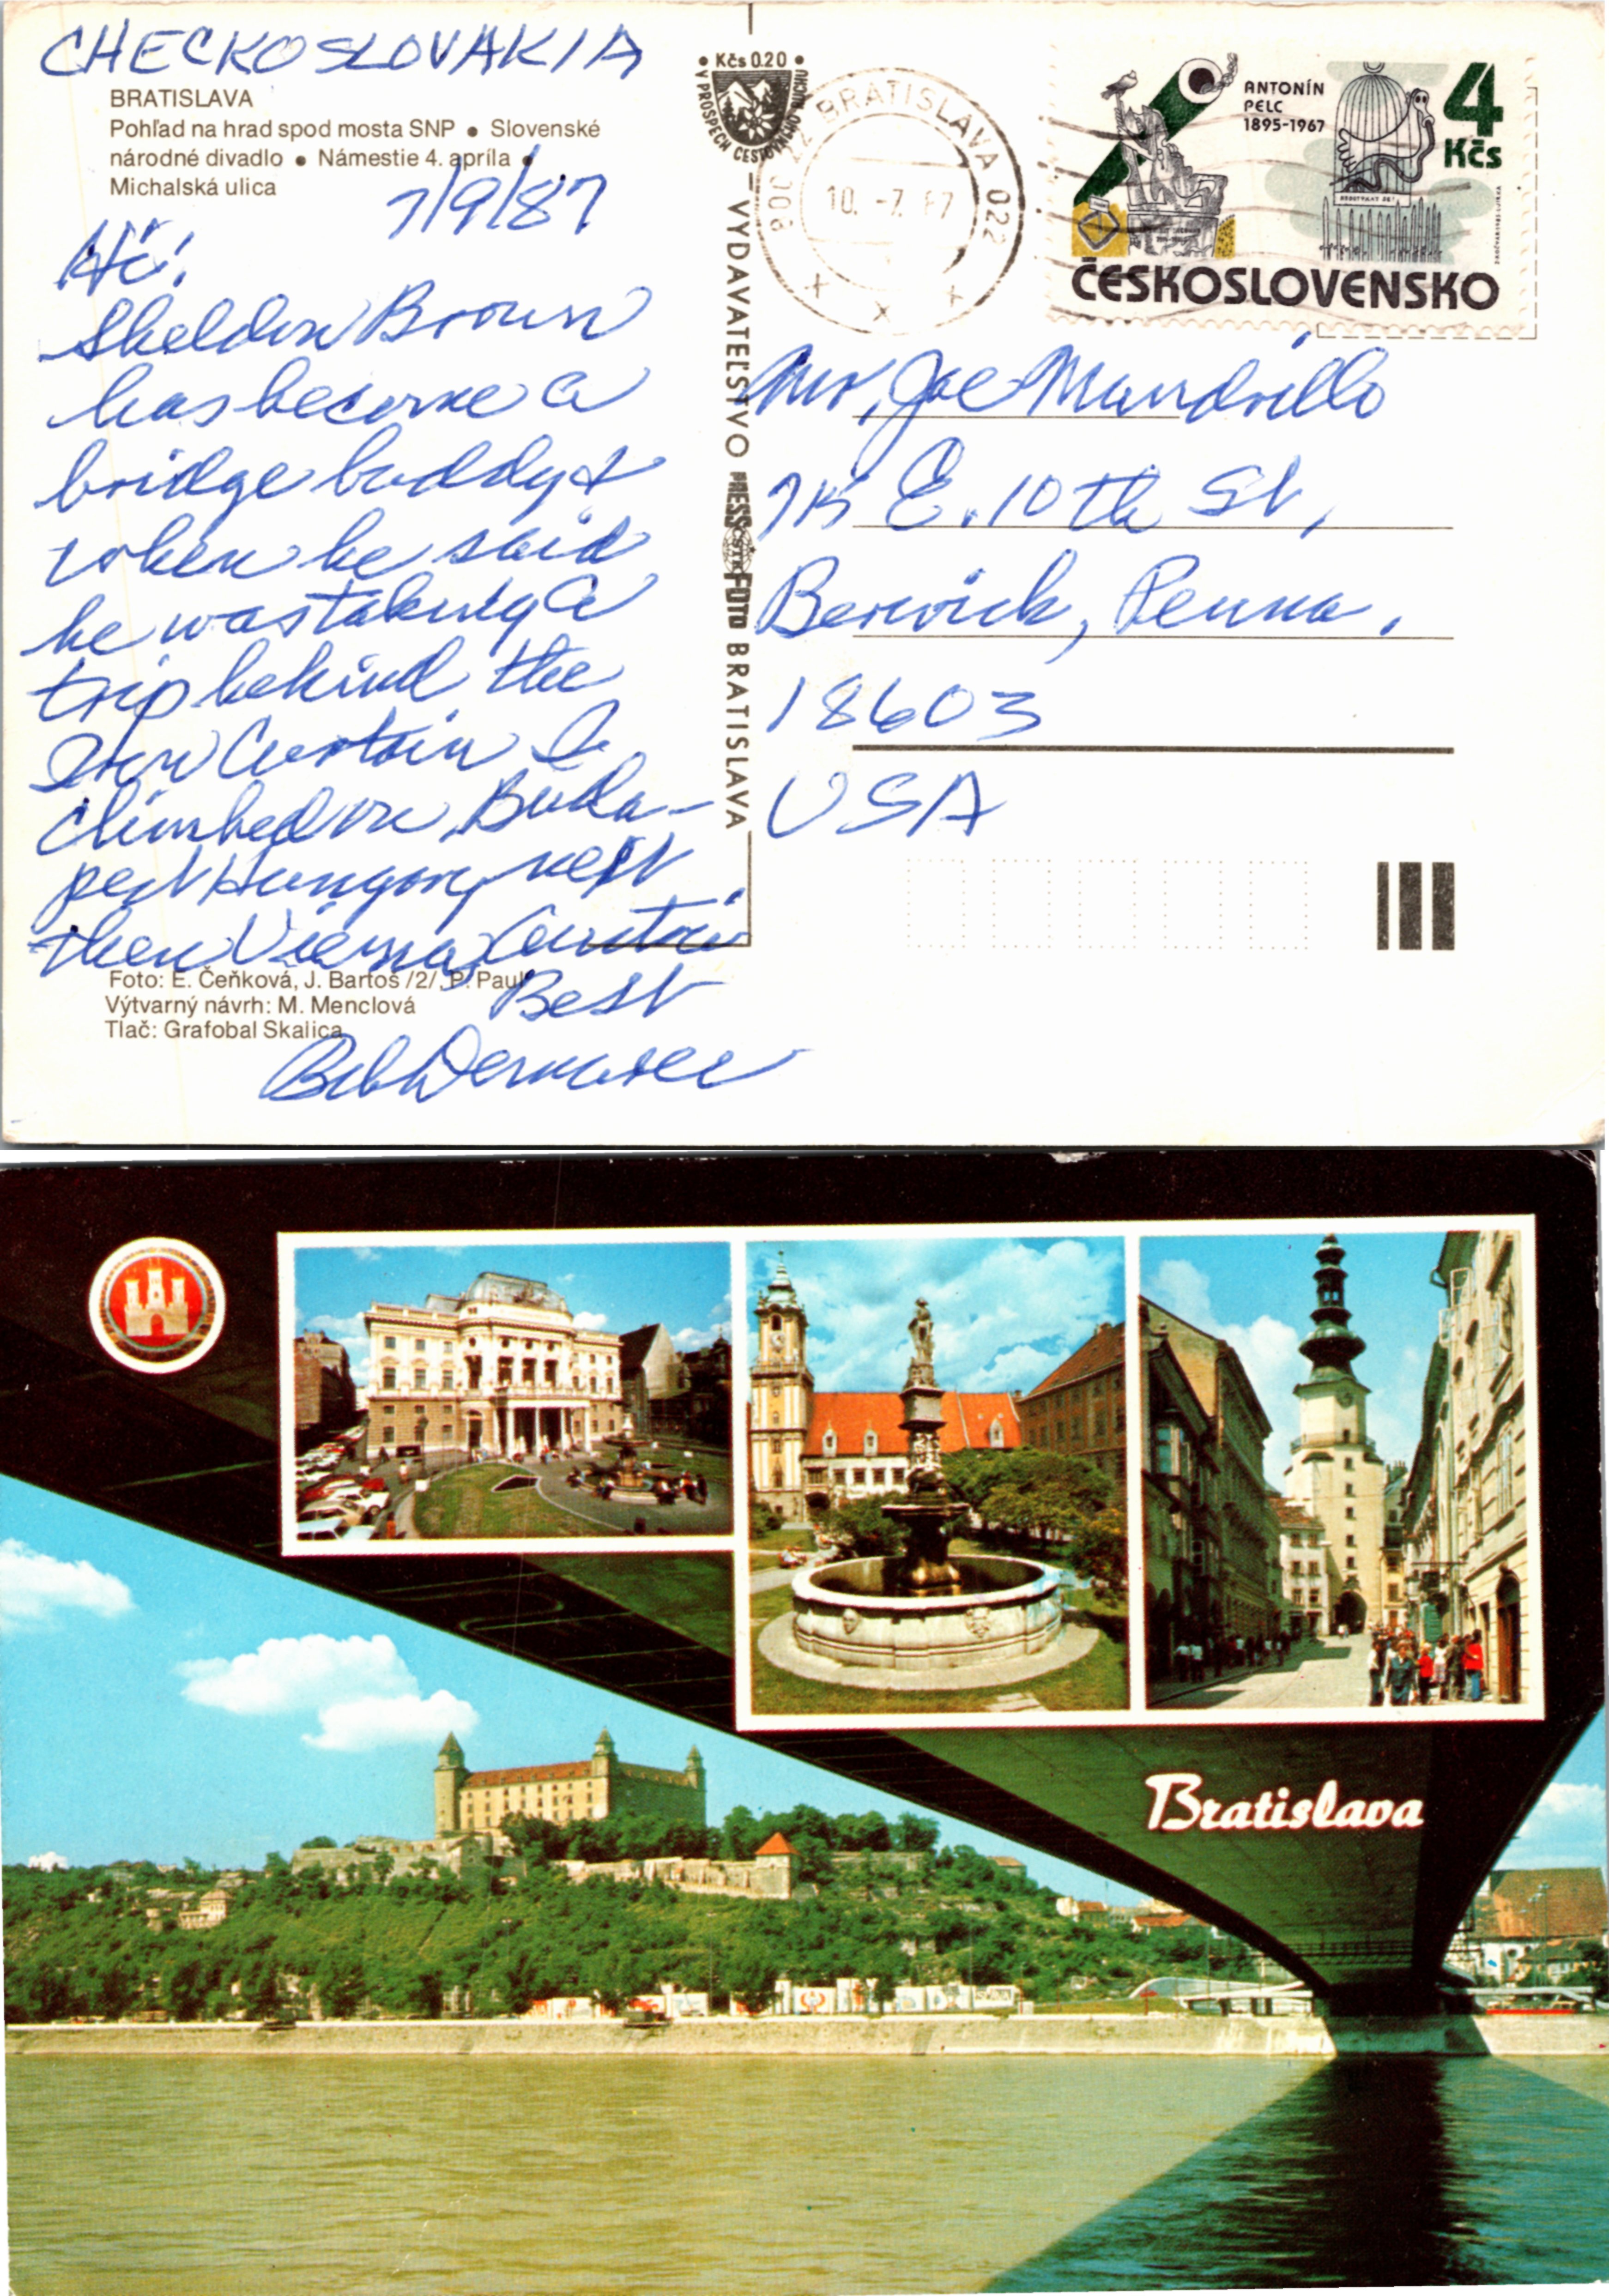 CHECKOSLOVAKIA
BRATISLAVA
Pohľad na hrad spod mosta SNP • Slovenské
národné divadlo • Námestie 4. apríla •
Michalská ulica
7/9/87
Hi!
Sheldon Brown
has become a
bridge buddy &
when he said
he was taking a
trip behind the
Iron Curtain I
climbed on, Buda-
pest Hungary next
then Vienna, Austria
Best
Bob
Foto: E. Čeňková, J. Bartoš /2/, P. Paul
Výtvarný návrh: M. Menclová
Tlač: Grafobal Skalica
• Kčs 0.20 •
V PROSPECH ČESKOSLOVENSKÉHO
VYDAVATEĽSTVO PRESSFOTO BRATISLAVA
ČSTK
BRATISLAVA 022
10. -7. 87
ANTONÍN
PELC
1895-1967
4
Kčs
ČESKOSLOVENSKO
Mr. Joe Mandrillo
E. 10th St,
Berwick, Penna.
18603
USA
Bratislava